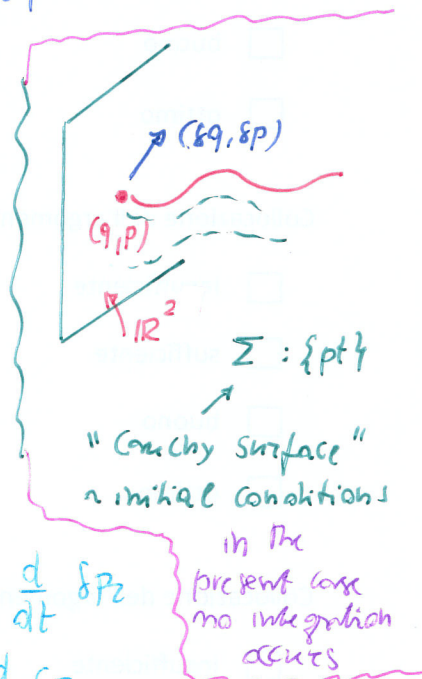 (δq, δp)
(q, p)
ℝ²
Σ : {pt}
"Cauchy surface"
~ initial conditions
in the
present case
no integration
occurs
d/dt δp₂
d